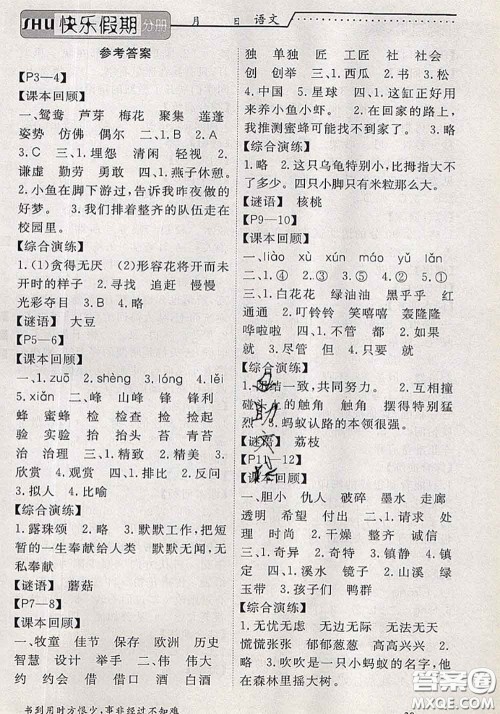 SHU 快乐假期 分册
月 日 语文
参考答案
【P3—4】
【课本回顾】
一、鸳鸯 芦芽 梅花 聚集 莲蓬
姿势 仿佛 偶尔 二、1.B 2.A
3.C 三、1.埋怨 清闲 轻视 2.
谦虚 勤劳 勇敢 四、1.燕子休憩。
2.小鱼在脚下游过,告诉我昨夜做的
好梦。 3.我们排着整齐的队伍走在
校园里。
【综合演练】
1.(1)贪得无厌 (2)形容花将开而未
开时的样子 2.寻找 追赶 慢慢
光彩夺目 3.B 4.略
【谜语】 大豆
【P5—6】
【课本回顾】
一、1.zuō 2.shèng 3.lóng 4.lěi
5.xiǎn 二、峰 山峰 锋 锋利
蜂 蜜蜂 检 检查 捡 捡起
验 实验 抬 抬头 苔 青苔
治 治理 三、1.精致 2.精美 3.
欣赏 4.观赏 四、1.拟人 2.反问
3.拟人 4.比喻
【综合演练】
1.露珠颂 2.略 3.默默工作,把短
暂的一生奉献给人类 默默无闻、无
私奉献
【谜语】 蘑菇
【P7—8】
【课本回顾】
一、牧童 佳节 保存 欧洲 历史
智慧 设计 举手 二、伟 伟大
约 约会 借 借口 酒 白酒
书到用时方恨少,事非经过不知难
独 单独 匠 工匠 社 社会
创 创举 三、1.西瓜 2.书 3.松
4.中国 5.星球 四、1.这缸正好用
来养小鱼小虾。 2.在回家的路上,
我推测蜜蜂可能找不到家了。 3.略
【综合演练】
1.略 2.这只乌龟特别小,比拇指大不
了多少。四只小脚只有米粒那么大。
【谜语】 核桃
【P9—10】
【课本回顾】
一、liào xù xún máo yǔ lǎn
二、1.① 2.④ 3.② 4.③ 5.①
三、1.白花花 绿油油 黑乎乎 红
通通 2.叮铃铃 笑嘻嘻 轰隆隆
哗啦啦 四、1.尽管 但 2.只有
才 3.尽管 但 4.如果 就
【综合演练】
1.一致 快乐 2.互相撞
碰 触角 摆得特别猛
3.蚂蚁认路的本领很强。
【谜语】 荔枝
【P11—12】
【课本回顾】
一、胆小 仇人 破碎 墨水 走廊
透明 希望 付出 二、1.请求 处
理 时时 2.干燥 盛开 奋力
三、1.奇异 2.奇特 3.镇定 4.镇
静 四、1.溪水 镜子 2.小山 绿
玉带 3.孩子们 鸭群
【综合演练】
1.无忧无虑 无边无际 无影无踪
慌慌张张 仿佛 急急忙忙
2.吹吹吹是一只小蚂蚁的名字,他
在森林里摇大树。
答案圈
MXQE.COM